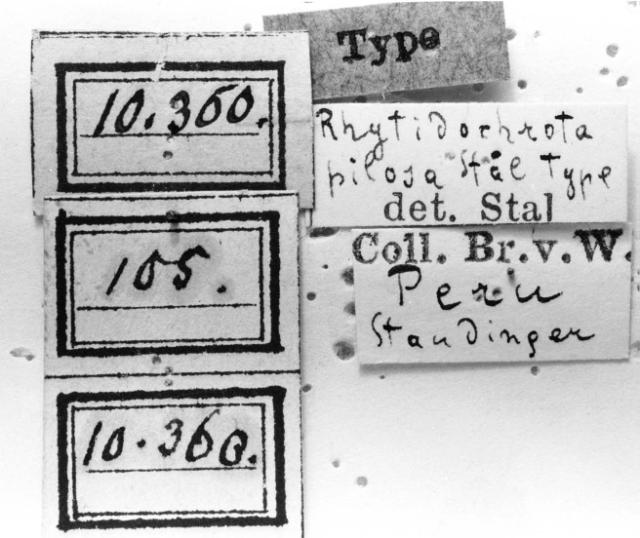 Type
10.360.
Rhytidochrota
pilosa Stål Type
det. Stal
105.
Coll. Br. v. W.
Peru
Staudinger
10.360.